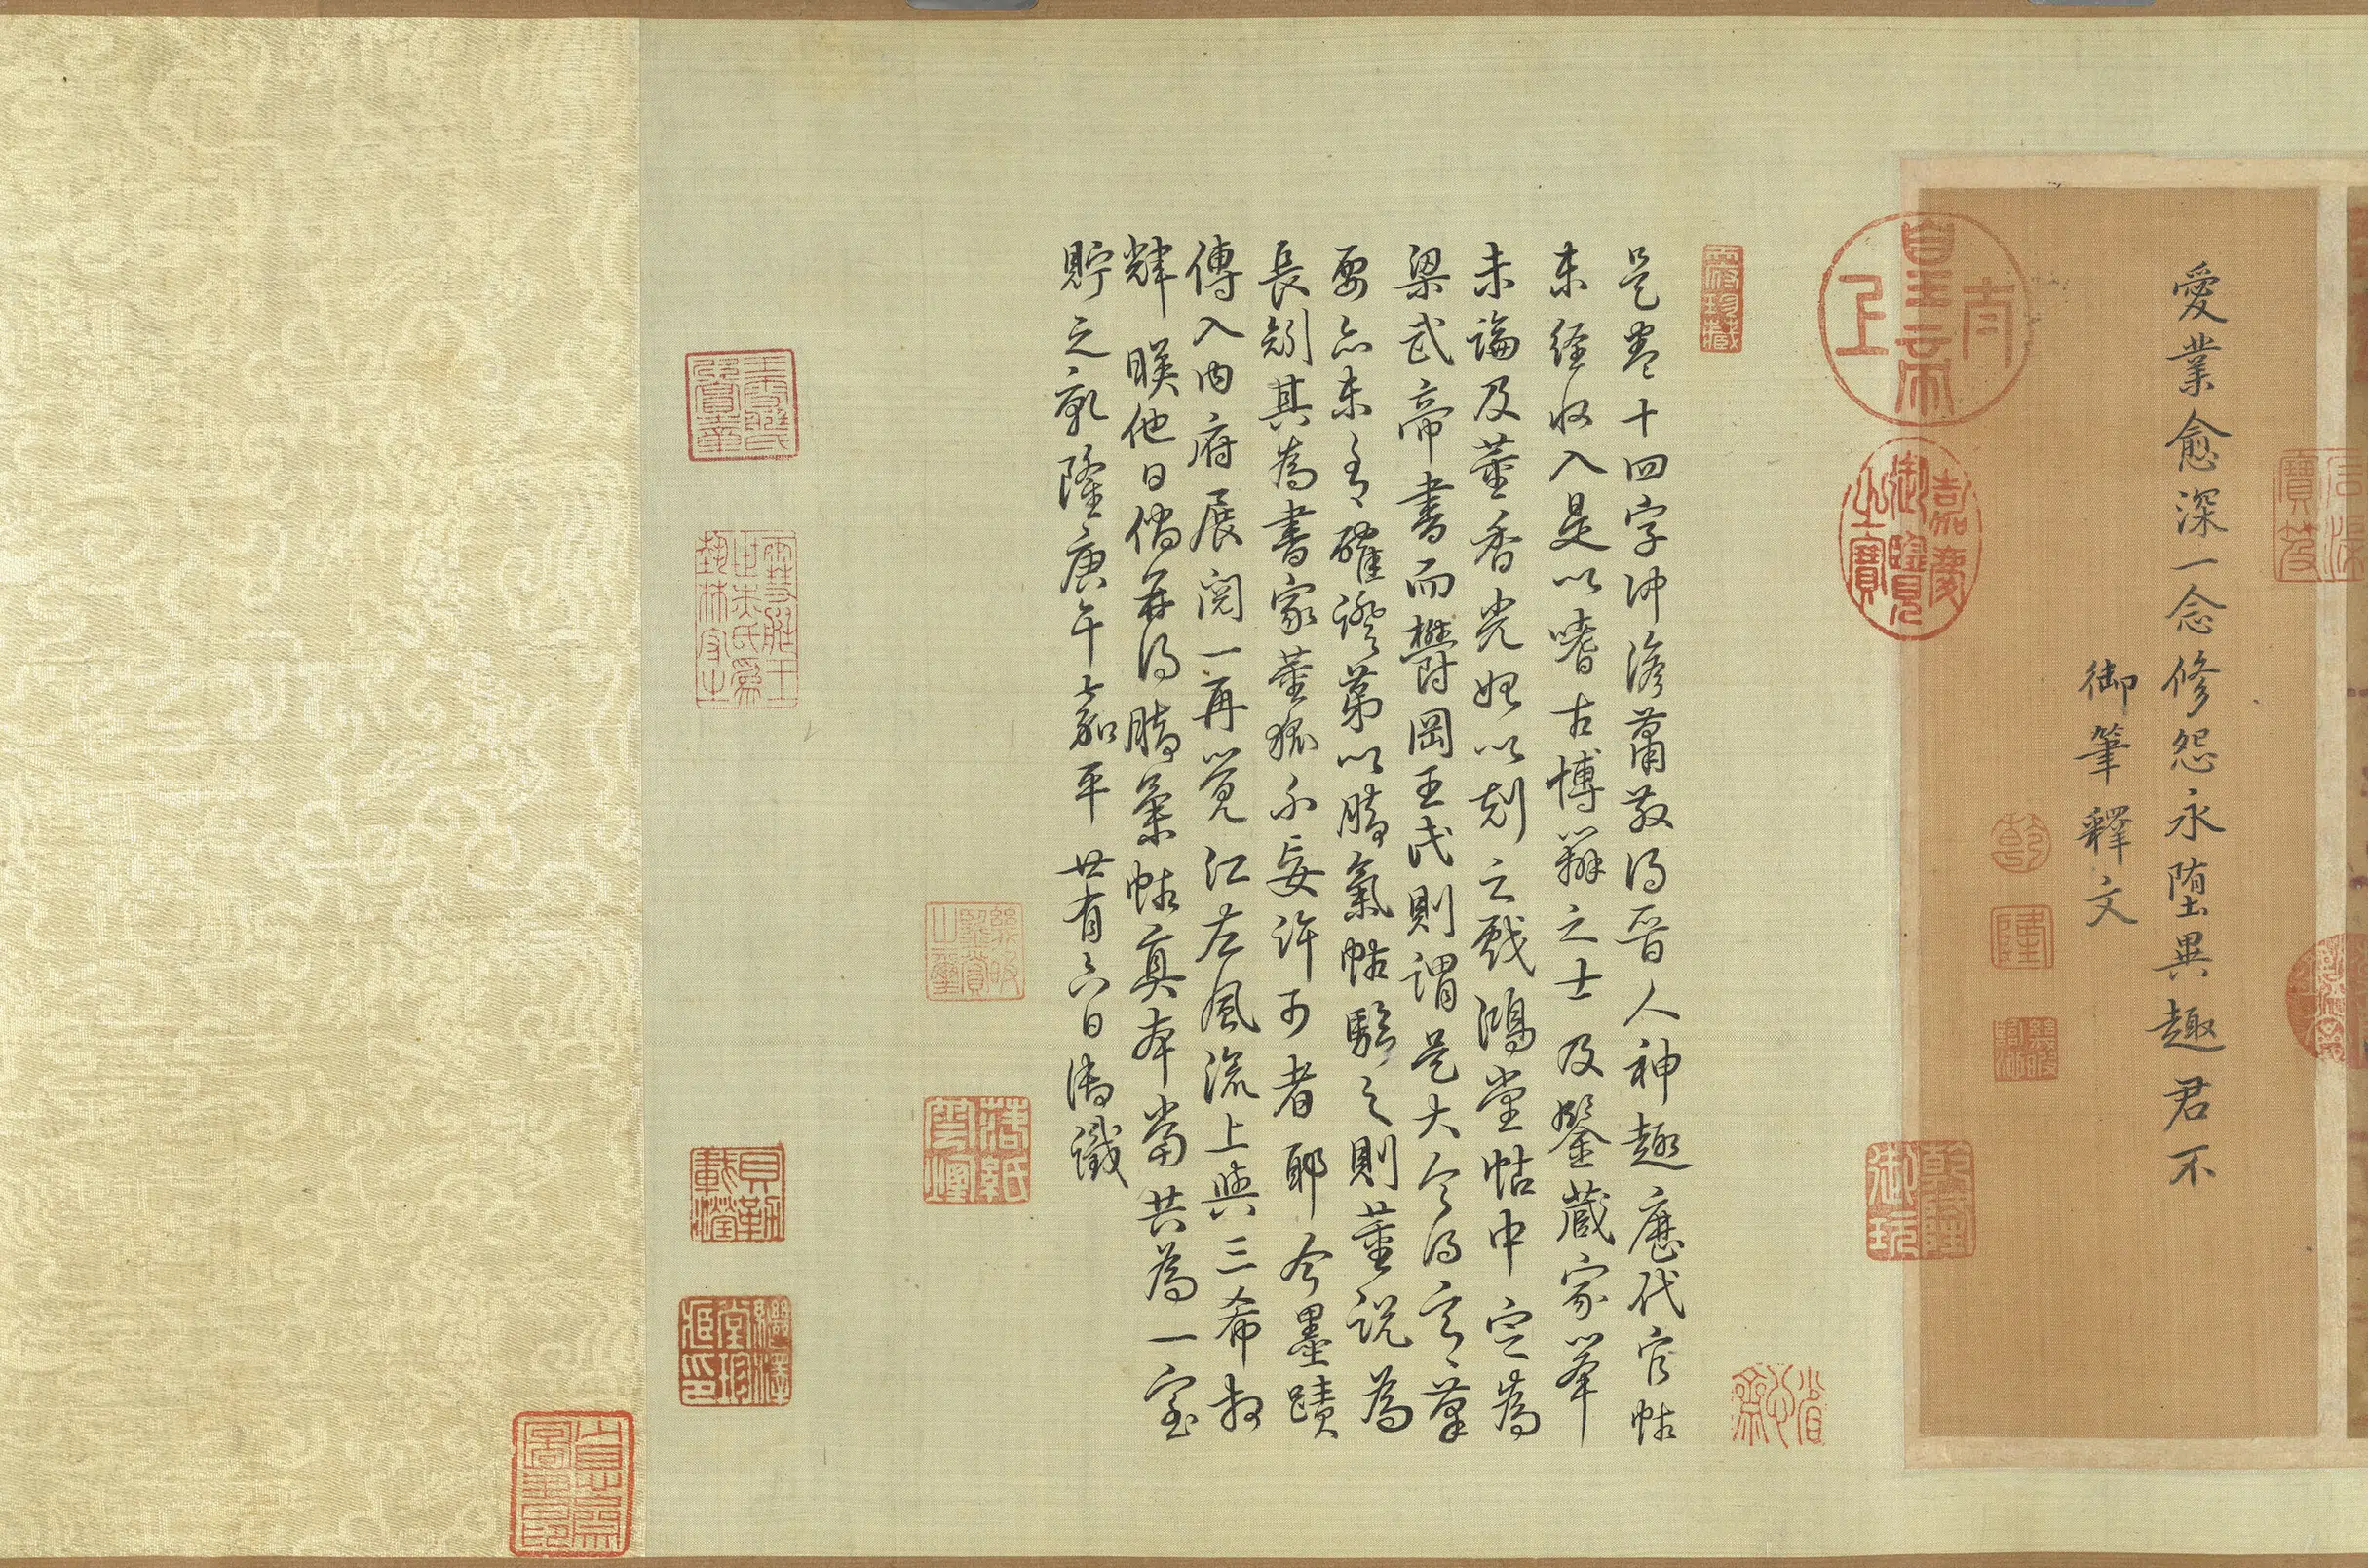 愛業愈深一念修怨永墮異趣君不
御筆釋文
乾
隆
幾暇臨池
太上皇帝
嘉慶御覽之寶
乾隆御玩
是卷十四字沖澹蕭散得晉人神趣歷代官帖
未經收入是以嗜古博辯之士及鑒藏家率
未論及董香光始以刻之戲鴻堂帖中定為
梁武帝書而鬱岡王氏則謂是大令得意筆
要亦未有確證第以腳氣帖驗之則董說為
長矧其為書家董狐不妄許可者耶今墨蹟
傳入內府展閱一再覺江左風流上與三希相
輝暎他日倘再得腳氣帖真本當共為一室
貯之乾隆庚午嘉平廿有六日御識
落紙雲煙
貝勒載瀅